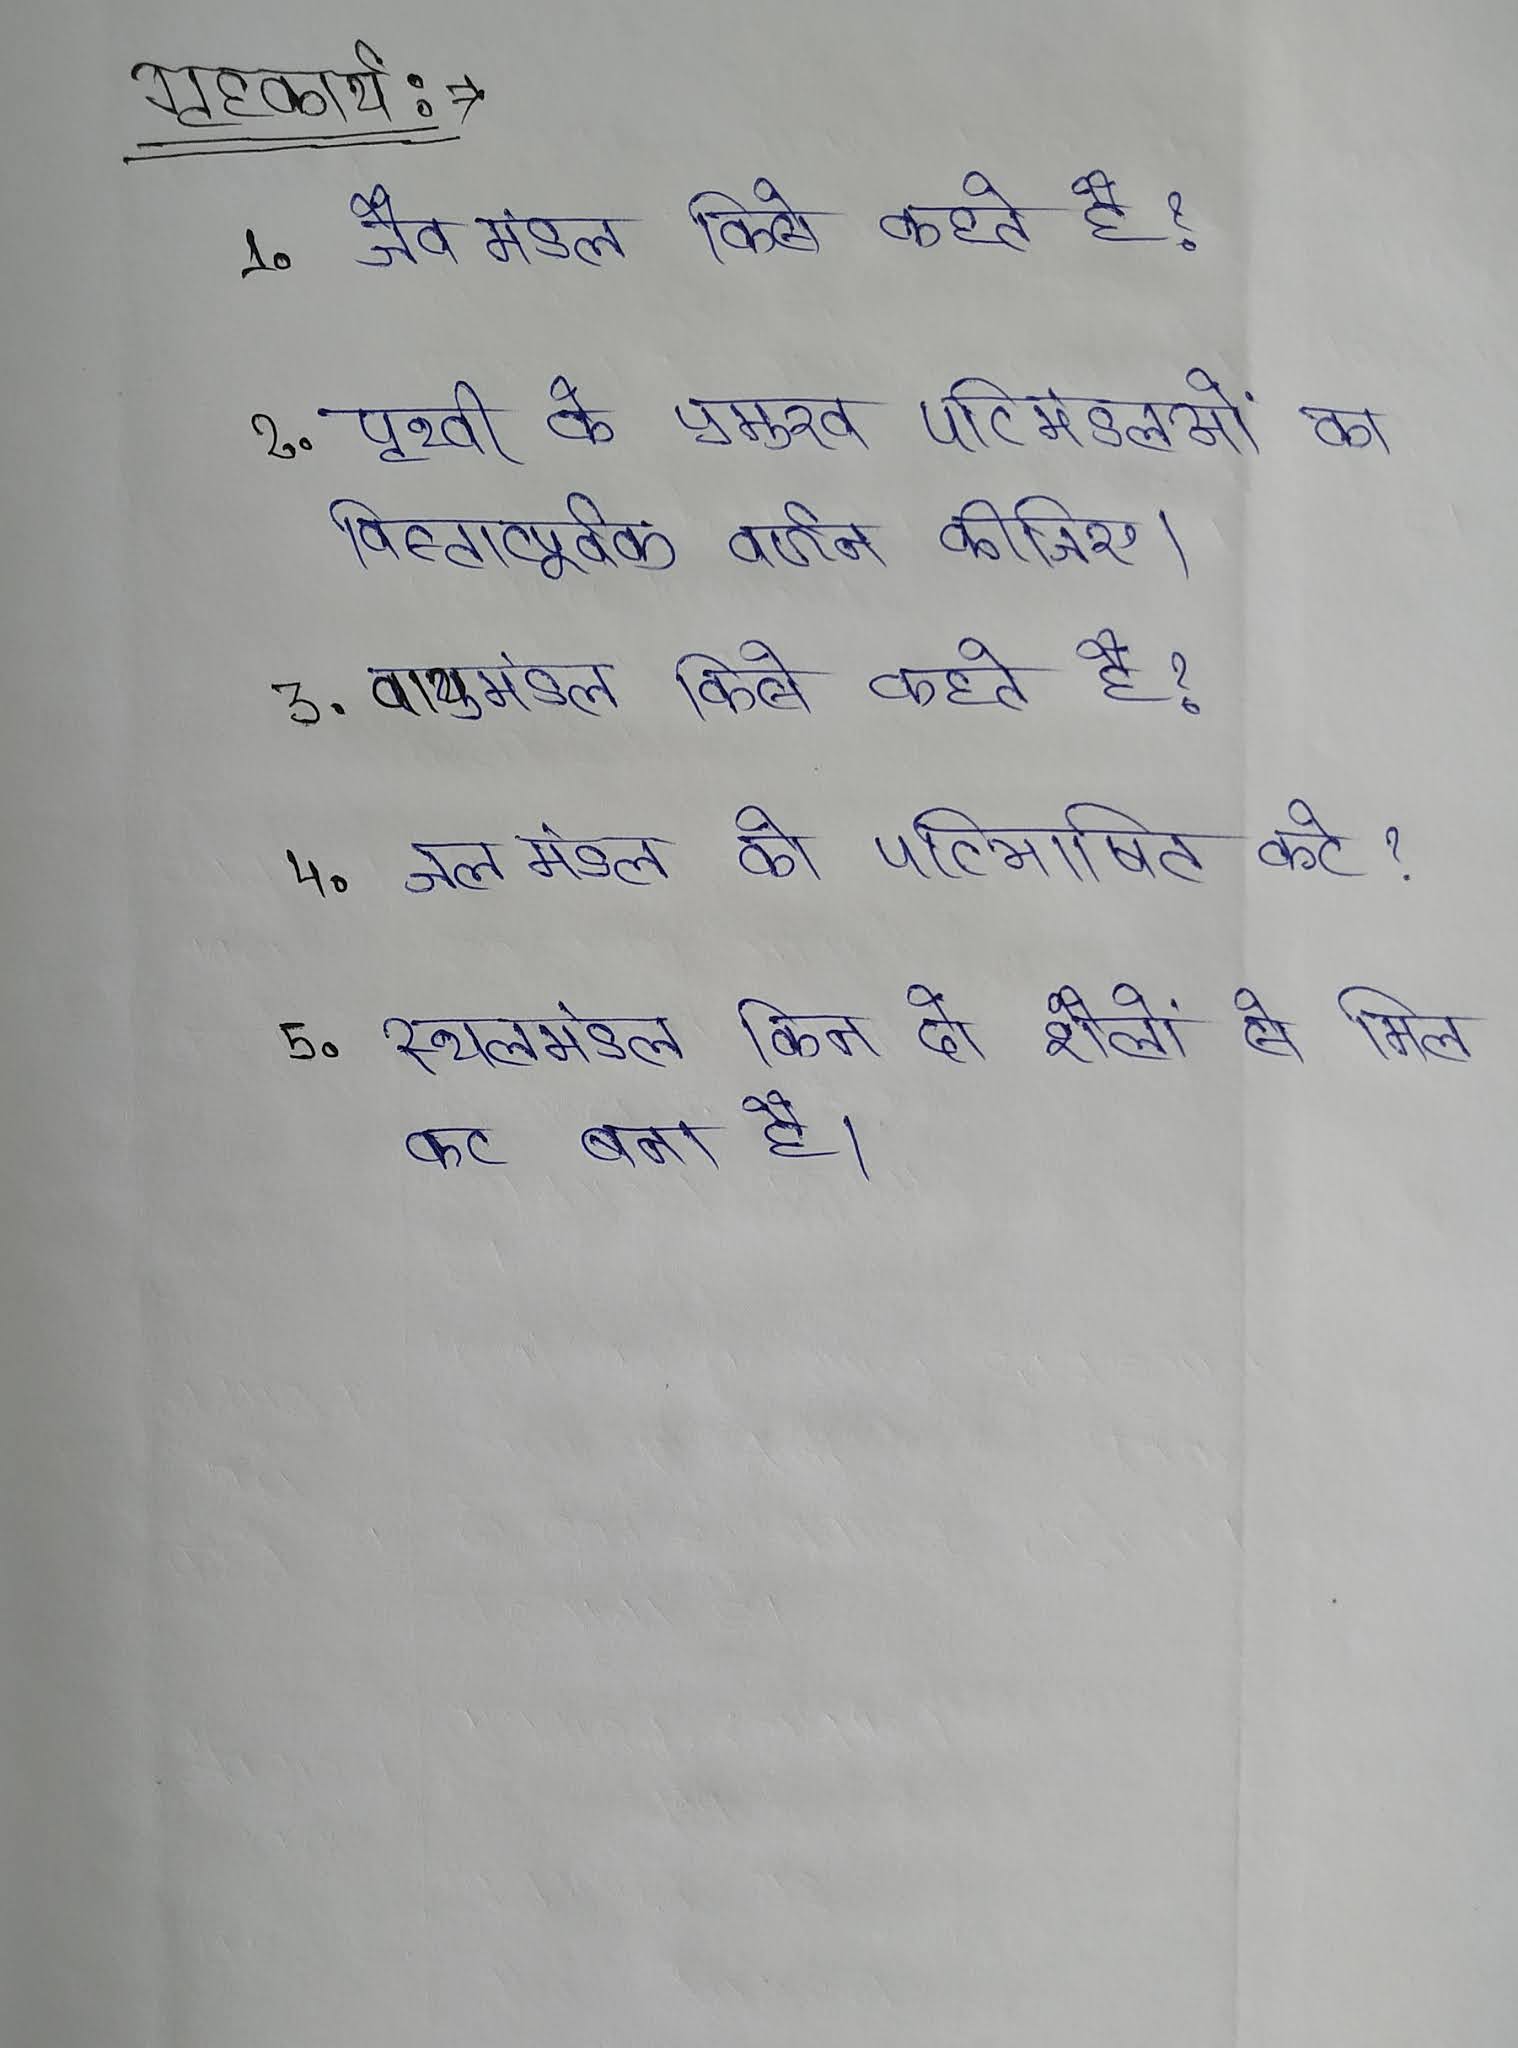 गृहकार्य :→
1. जैव मंडल किसे कहते है?
2. पृथ्वी के प्रमुख परिमंडलओं का
विस्तारपूर्वक वर्णन कीजिए।
3. वायुमंडल किसे कहते है?
4. जल मंडल को परिभाषित करे?
5. स्थलमंडल किन दो शैलों से मिल
कर बना है।